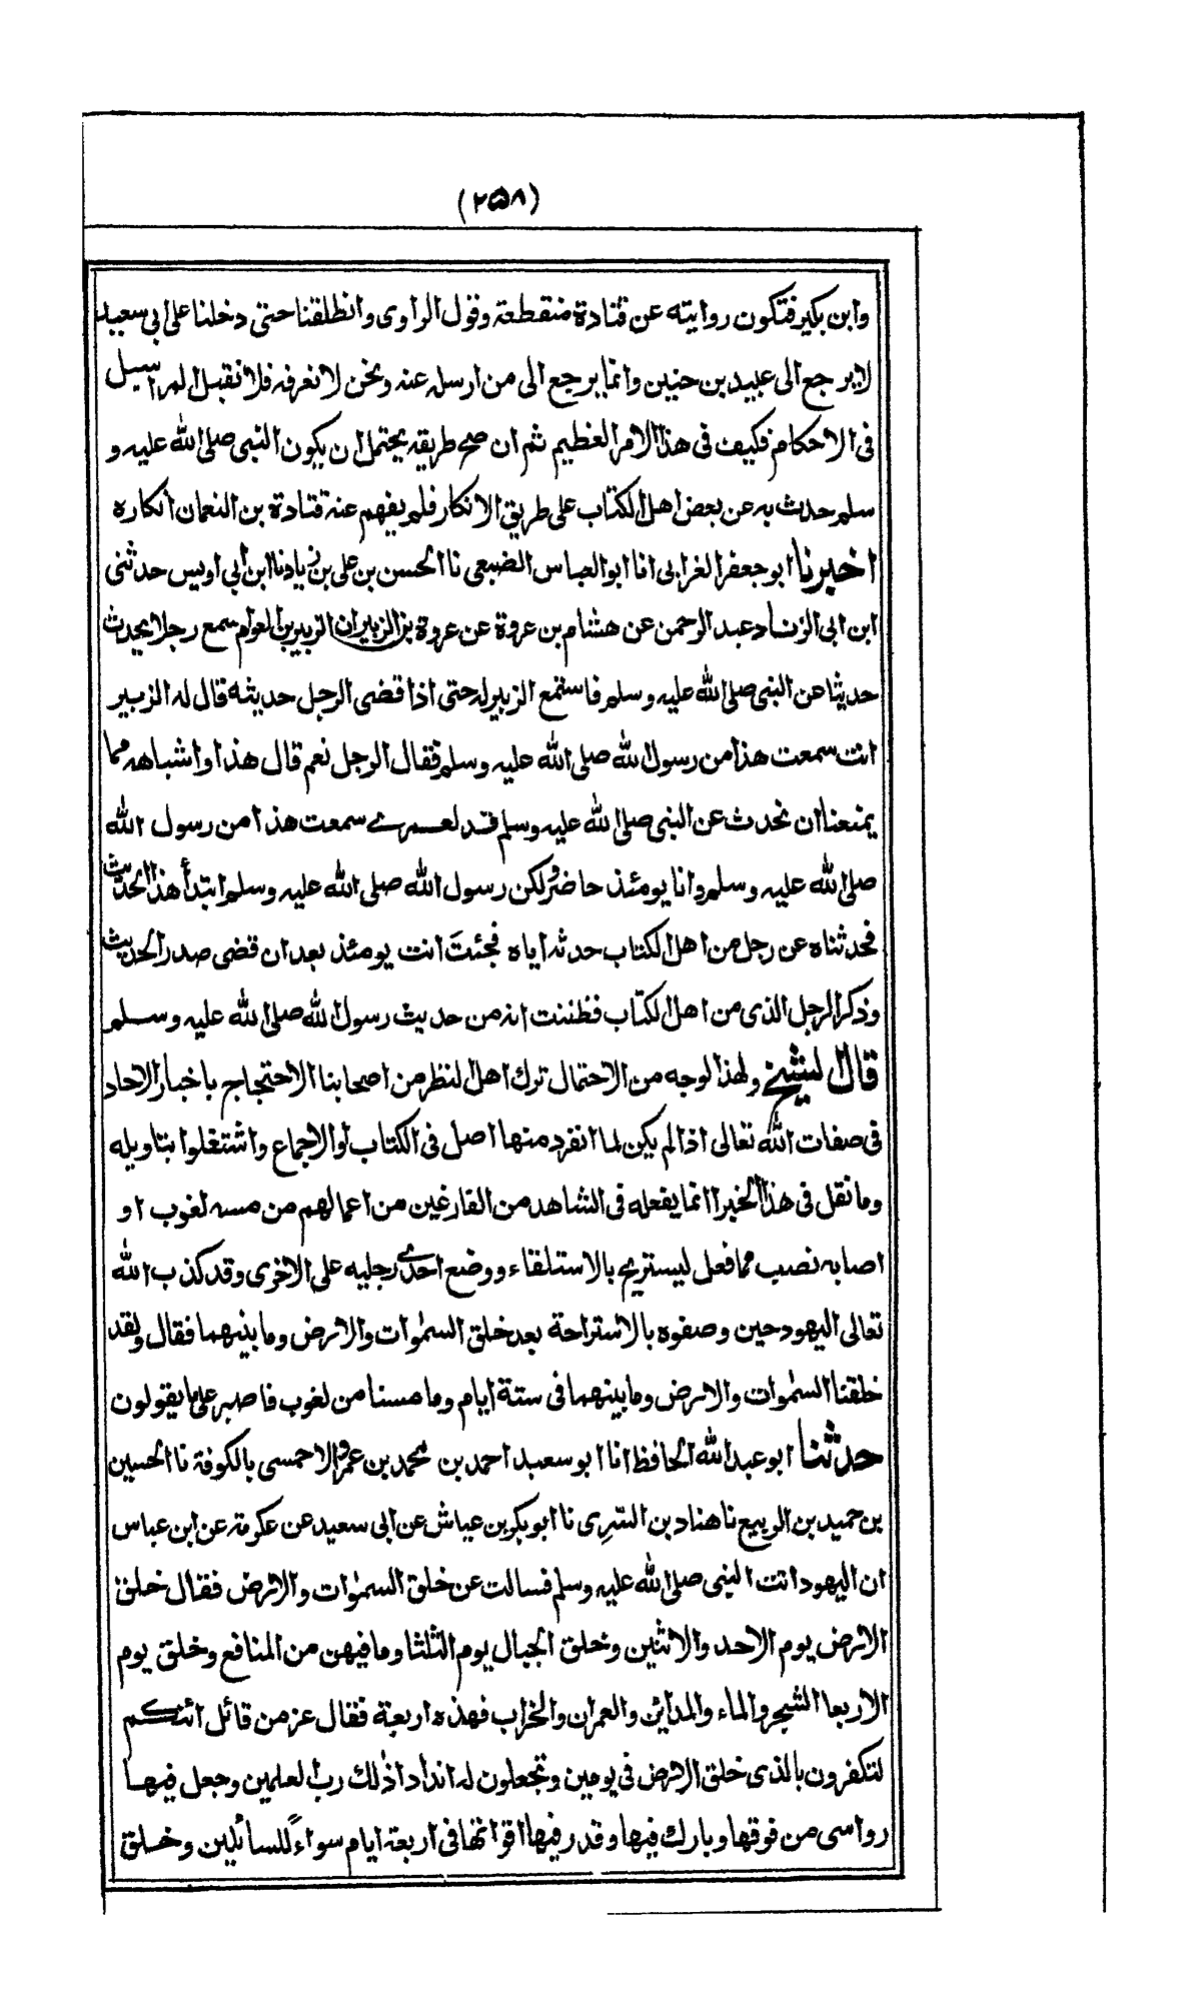 (۲۵۸)
وابن بكير فتكون روايته عن قتادة منقطعة وقول الراوى وانطلقنا حتى دخلنا على ابى سعيد
لا يرجع الى عبيد بن حنين وانما يرجع الى من ارسله عنه ونحن لا نعرفه فلا نقبل المراسيل
فى الاحكام فكيف فى هذا الامر العظيم ثم ان صح طريقه يحتمل ان يكون النبى صلى الله عليه و
سلم حدث به عن بعض اهل الكتاب على طريق الانكار فلم يفهم عنه قتادة بن النعمان انكاره
اخبرنا ابو جعفر الغرابى انا ابو العباس الضبعى نا الحسن بن على بن زياد نا ابن ابى اويس حدثنى
ابن ابى الزناد عبد الرحمن عن هشام بن عروة عن عروة بن الزبير ان الزبير بن العوام سمع رجلا يحدث
حديثا عن النبى صلى الله عليه وسلم فاستمع الزبير له حتى اذا قضى الرجل حديثه قال له الزبير
انت سمعت هذا من رسول الله صلى الله عليه وسلم فقال الرجل نعم قال هذا واشباهه مما
يمنعنا ان نحدث عن النبى صلى الله عليه وسلم قد لعمرے سمعت هذا من رسول الله
صلى الله عليه وسلم وانا يومئذ حاضر ولكن رسول الله صلى الله عليه وسلم ابتدأ هذا الحديث
فحدثناه عن رجل من اهل الكتاب حدثه اياه فجئتَ انت يومئذ بعد ان قضى صدر الحديث
وذكر الرجل الذى من اهل الكتاب فظننت انه من حديث رسول الله صلى الله عليه وسلم
قال الشيخ ولهذا الوجه من الاحتمال ترك اهل النظر من اصحابنا الاحتجاج باخبار الاحاد
فى صفات الله تعالى اذا لم يكن لما انفرد منها اصل فى الكتاب او الاجماع واشتغلوا بتاويله
وما نقل فى هذا الخبر انما يفعله فى الشاهد من الفارغين من اعمالهم من مسه لغوب او
اصابه نصب مما فعل ليستريح بالاستلقاء ووضع احدى رجليه على الاخرى وقد كذب الله
تعالى اليهود حين وصفوه بالاستراحة بعد خلق السمٰوات والارض وما بينهما فقال ولقد
خلقنا السمٰوات والارض وما بينهما فى ستة ايام وما مسنا من لغوب فاصبر على ما يقولون
حدثنا ابو عبد الله الحافظ انا ابو سعيد احمد بن محمد بن عمرو الاحمسى بالكوفة نا الحسين
بن حميد بن الربيع نا هناد بن السّرِى نا ابو بكر بن عياش عن ابى سعيد عن عكرمة عن ابن عباس
ان اليهود اتت النبى صلى الله عليه وسلم فسالت عن خلق السمٰوات والارض فقال خلق
الارض يوم الاحد والاثنين وخلق الجبال يوم الثلثا وما فيهن من المنافع وخلق يوم
الاربعا الشجر والماء والمدائن والعمران والخراب فهذه اربعة فقال عز من قائل ائنكم
لتكفرون بالذى خلق الارض فى يومين وتجعلون له اندادا ذٰلك رب العلمين وجعل فيها
رواسى من فوقها وبارك فيها وقدر فيها اقواتها فى اربعة ايام سواءً للسائلين وخلق